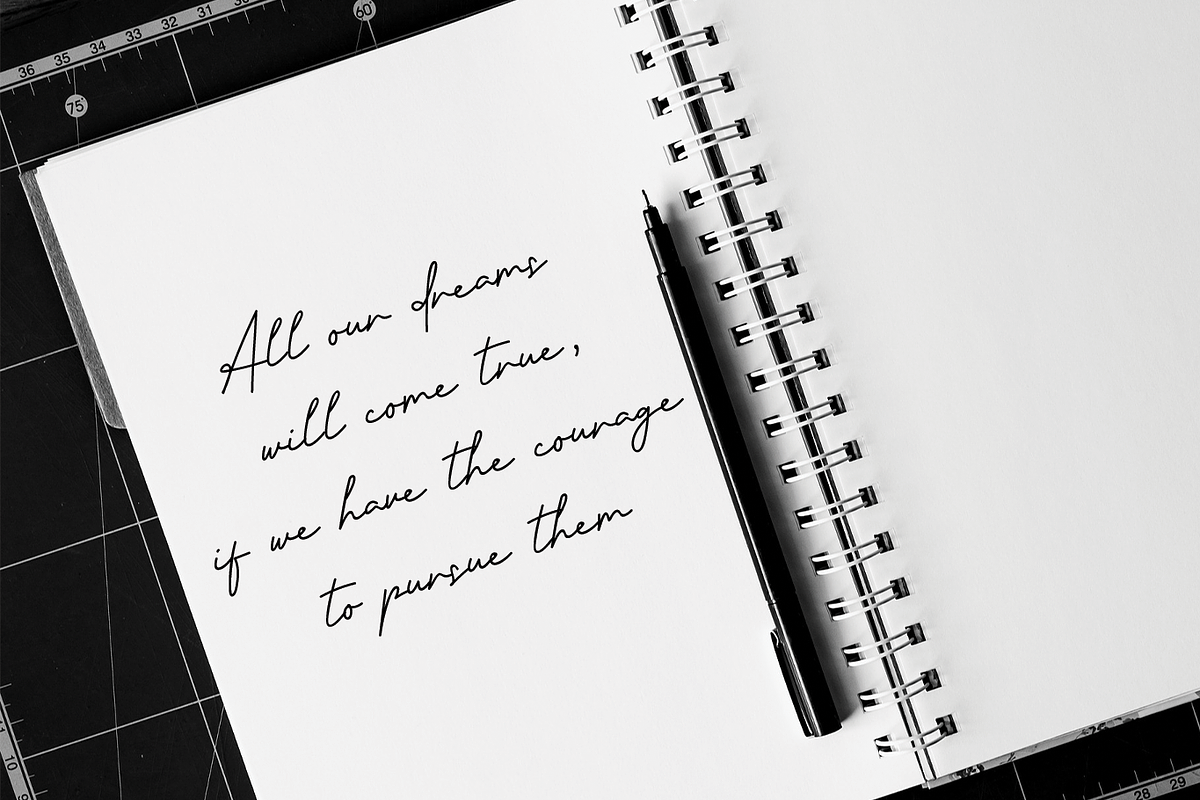 36 35 34 33 32 31 30
60°
75°
All our dreams
will come true,
if we have the courage
to pursue them
10
28 29